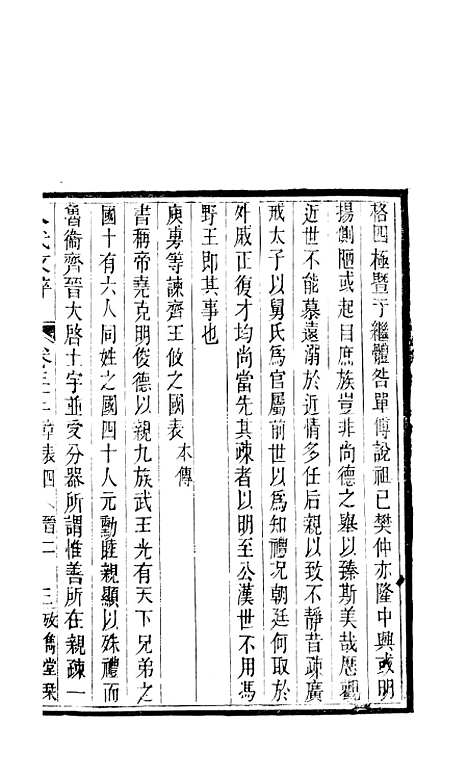 格四極暨于繼體咎單傅說祖己樊仲亦隆中興或明
揚側陋或起目庶族豈非尚德之舉以臻斯美哉歷觀
近世不能慕遠溺於近情多任后親以致不靜昔疎廣
戒太子以舅氏爲官屬前世以爲知禮況朝廷何取於
外戚正復才均尚當先其疎者以明至公漢世不用馮
野王即其事也
庾旉等諫齊王攸之國表 本傳
書稱帝堯克明俊德以親九族武王光有天下兄弟之
國十有六人同姓之國四十人元勳睢親顯以殊禮而
魯衞齊晉大啓土宇並受分器所謂惟善所在親疎一
八代文粹 卷三十 章表四 晉二 三 攷雋堂栞